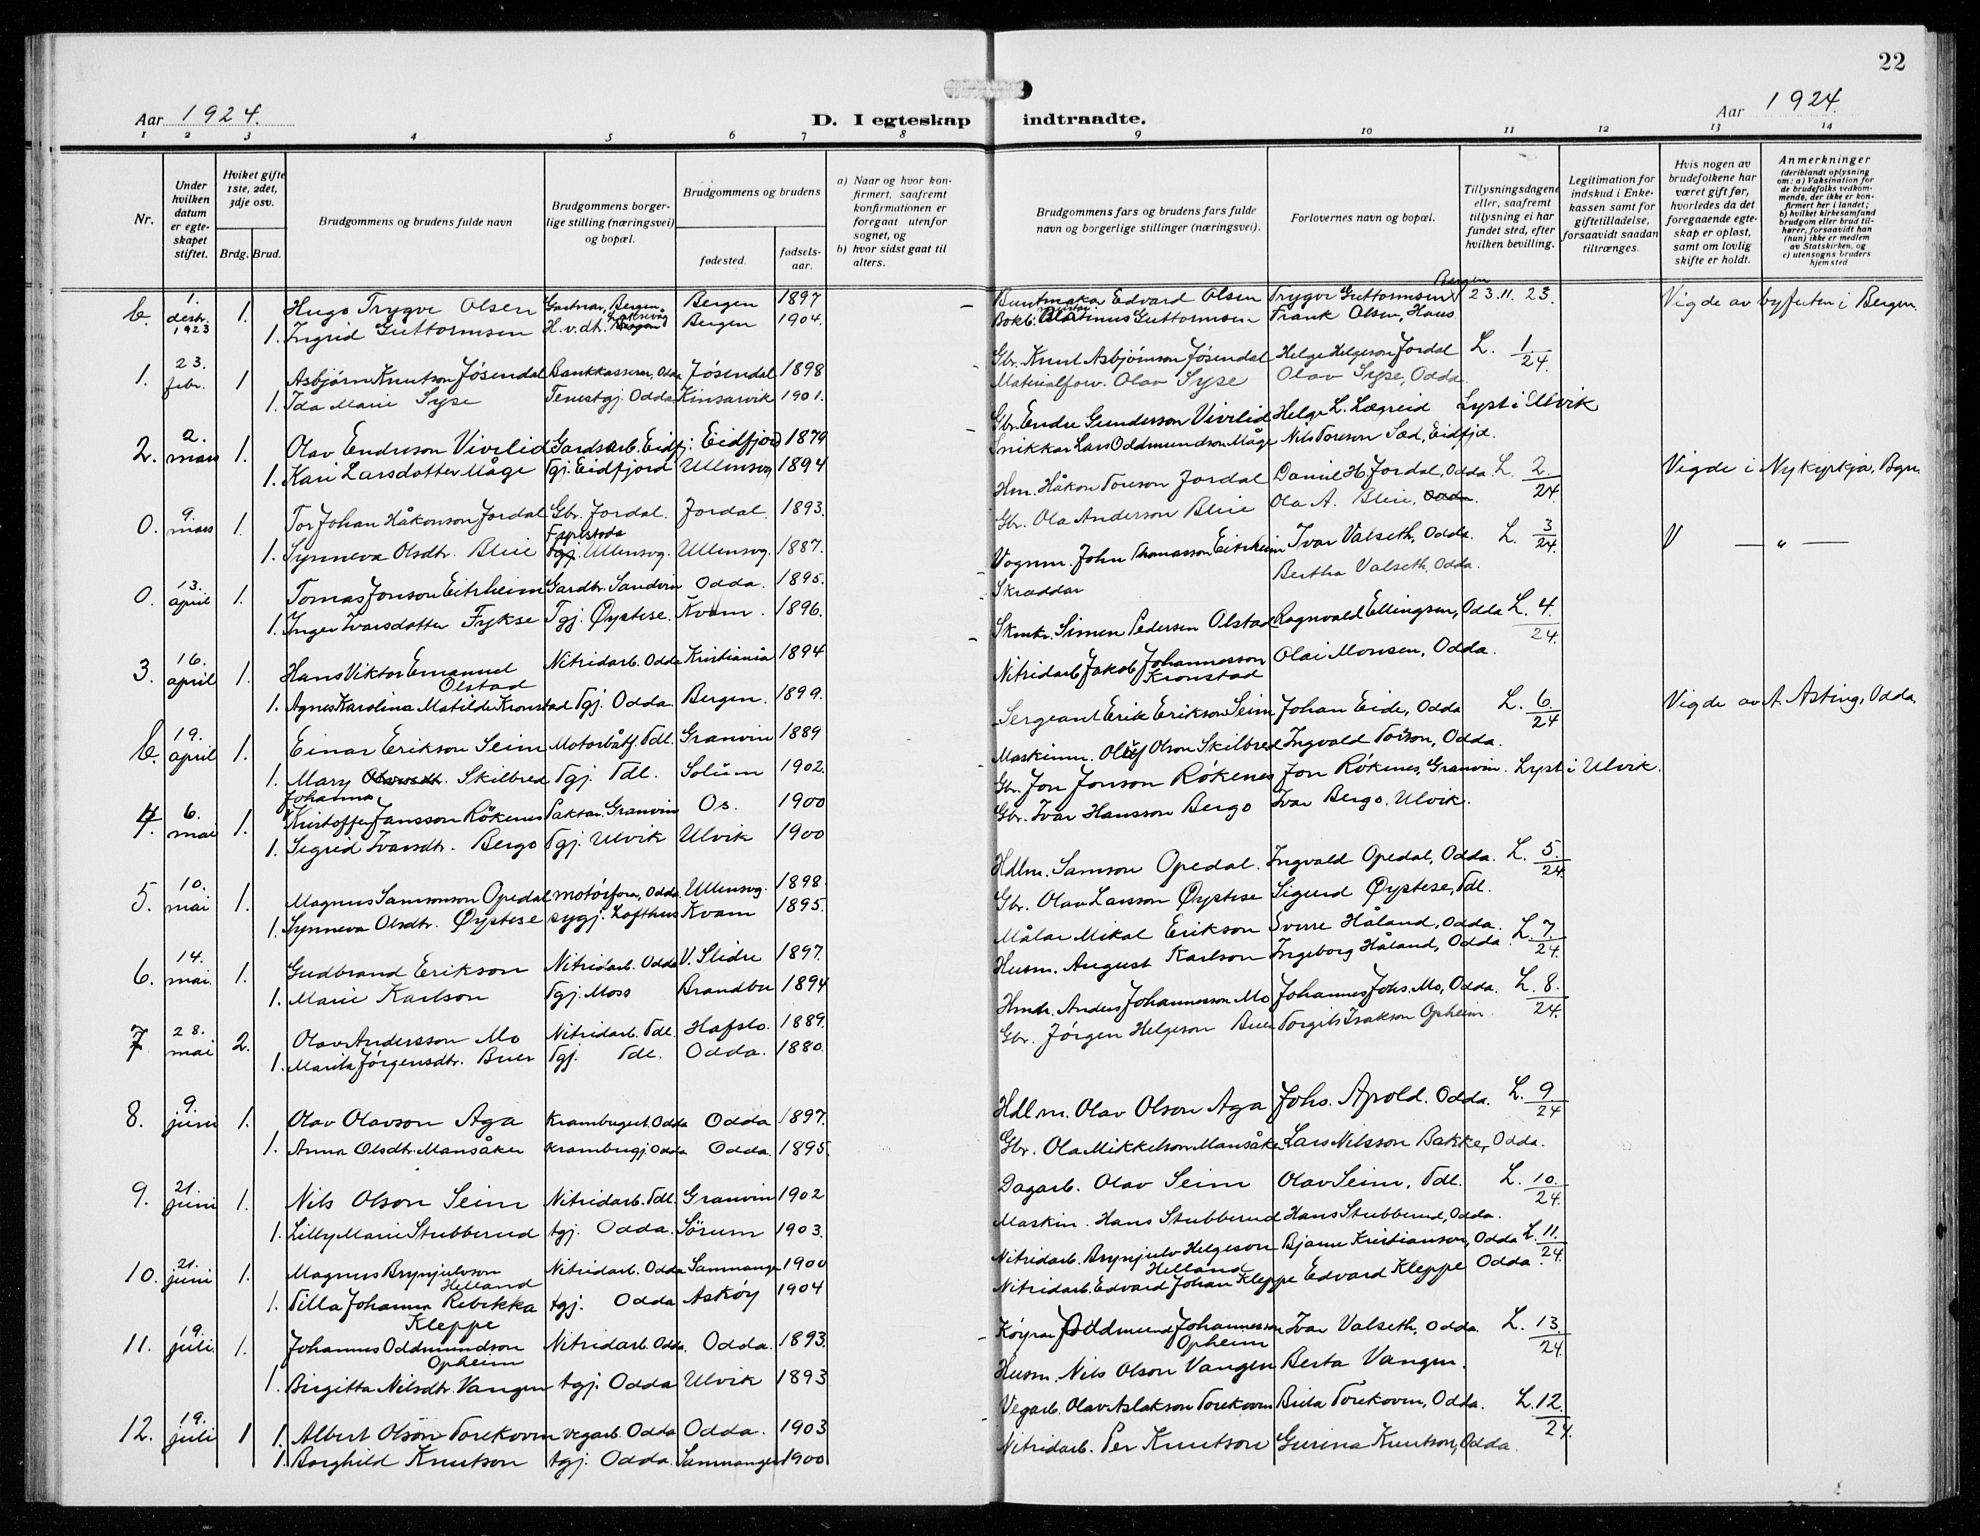 22
Aar 1924.
D. I egteskap indtraadte.
Aar 1924.
1 2 3 4 5 6 7 8 9 10 11 12 13 14
Nr.
Under hvilken datum er egteskapet stiftet.
Hviket gifte 1ste, 2det, 3dje osv.
Brdg. Brud.
Brudgommens og brudens fulde navn
Brudgommens borgerlige stilling (næringsvei) og bopæl.
Brudgommens og brudens
fødested.
fødselsaar.
a) Naar og hvor konfirmert, saafremt konfirmationen er foregaat utenfor sognet, og
b) hvor sidst gaat til alters.
Brudgommens fars og brudens fars fulde navn og borgerlige stillinger (næringsvei).
Forlovernes navn og bopæl.
Tillysningsdagene eller, saafremt tillysning ei har fundet sted, efter hvilken bevilling.
Legitimation for indskud i Enkekassen samt for giftetilladelse, forsaavidt saadan tiltrænges.
Hvis nogen av brudefolkene har været gift før, hvorledes da det foregaaende egteskap er opløst, samt om lovlig skifte er holdt.
Anmerkninger (deriblandt oplysning om: a) Vaksination for de brudefolks vedkommende, der ikke er konfirmert her i landet; b) hvilket kirkesamfund brudgom eller brud tilhører, forsaavidt han (hun) ikke er medlem av Statskirken, og c) utensogns bruders hjemsted
b. 1. destr. 1923 1. Hugo Trygve Olsen Gartnar, Bergen, Bergen 1897 Buntmakar Edvard Olsen Trygve Guttormsen Bergen 23.11.23. Vigde av byfuten i Bergen.
1. Ingrid Guttormsen H.v.dt. Laksevåg Bergen 1904. Bokb. Martinus Guttormsen Frank Olsen, Haus
1. 23. febr. 1 Asbjørn Knutson Jøsendal Bankkasserar, Odda Jøsendal 1898 Gbr. Knut Asbjørnson Jøsendal Helge Helgeson Jordal L. 1/24.
1. Ida Marie Syse Tenestgj. Odda Kinsarvik 1901. Materialforv. Olav Syse Olav Syse, Odda.
2. 2. mars 1. Olav Endreson Vivelid Gardsarb. Eidfj. Eidfjord 1879 Gbr. Endre Gunderson Vivelid Helge L. Lægreid Lyst i Ulvik
1. Kari Larsdotter Måge Tgj. Eidfjord Ullensvg 1894 Snikkar Lars Oddmundson Måge Nils Toreson Sæd, Eidfjd.
0. 9. mars 1. Tor Johan Håkonson Jordal Gbr. Jordal. Jordal. 1893. Hm. Håkon Toreson Jordal Daniel H. Jordal, Odda L. 2./24. Vigde i Nykyrkja, Bgn.
1. Synneva Olsdtr. Bleie Tgj. Ullensvg. Ullensvg. 1887. Gbr. Ola Anderson Bleie Ola A. Bleie, Odda
0. 13. april 1. Tomas Jonson Eitrheim Gardbr. Sandvin Odda. 1895. Vognm. John Thomasson Eitrheim Ivar Valseth, Odda. L. 3/24. V — „ —
1. Inger Ivarsdotter Fykse Tgj. Øystese. Kvam. 1896. Skræddar Bertha Valseth, Odda.
3. 16. april 1. Hans Viktor Emanuel Olstad Nitridarb. Odda Kristiania 1894 Skmkr. Simen Pedersen Olstad Ragnvald Ellingsen, Odda L. 4./24.
1. Agnes Karolina Matilde Kronstad Tgj. Odda. Bergen. 1899. Nitridarb. Jakob Johannesson Kronstad Olai Monsen, Odda.
b. 19. april 1. Einar Erikson Seim Motorbåtf. Tdl. Granvin 1889 Sergeant Erik Erikson Seim Johan Eide, Odda L. 6./24 Vigde av A. Asting, Odda.
1. Mary Johanna Skilbred Tgj. Tdl. Solum 1902. Maskinm. Oluf Olson Skilbred Ingvald Toison, Odda.
4. 6. mai 1. Kristoffer Jansson Røkenes Paktar. Granvin Os. 1900 Gbr. Jon Jonson Røkenes Jon Røkenes, Granvin. Lyst i Ulvik.
1. Sigrid Ivarsdtr. Bergo Tgj. Ulvik Ulvik 1900 Gbr. Ivar Hansson Bergo Ivar Bergo. Ulvik.
5. 10. mai 1. Magnus Samsonson Opedal motorfora, Odda Ullensvg. 1898. Hdlm. Samson Opedal. Ingvald Opedal, Odda. L. 5./24.
1. Synneva Olsdtr. Øystese sygj. Lofthus Kvam 1895. Gbr. Olav Larsson Øystese Sigurd Øystese, Tdl.
6. 14. mai. 1. Gudbrand Erikson Nitridarb. Odda V. Slidre 1897. Målar Mikal Erikson Sverre Håland, Odda. L. 7./24.
1. Marie Karlson Tgj. Moss Brandbu 1894 Husm. August Karlson Ingeborg Håland, Odda
7. 28. mai 2. Olav Andersson Mo Nitridarb. Tdl. Hafslo. 1889. Hmdr. Anders Johannesson Mo Johannes Johs. Mo, Odda. L. 8./24.
1. Marita Jørgensdtr. Buer Tgj. Tdl. Odda. 1880. Gbr. Jørgen Helgeson Buer Torgils Isakson Opheim.
8. 9. juni 1. Olav Olavson Aga Krambugut. Odda Odda 1897. Hdlm. Olav Olson Aga Johs. Apold. Odda. L. 9/24
1. Anna Olsdtr. Mansåker Krambugj. Odda Odda. 1895. Gbr. Ola Mikkelson Mansåker Lars Nilsson Bakke, Odda.
9. 21. juni 1. Nils Olson Seim Nitridarb. Tdl. Granvin 1902 Dagarb. Olav Seim Olav Seim, Tdl. L. 10./24.
1. Lilly Marie Stubberud tgj. Odda. Sørum 1903. Maskin. Hans Stubberud Hans Stubberud, Odda.
10. 21. juni 1. Magnus Brynjulvson Helland Nitridarb. Odda Samnanger 1900 Nitridarb. Brynjulv Helgeson Helland Bjarne Kristianson, Odda L. 11./24.
1. Tilla Johanna Rebekka Kleppe tgj. Odda Askøy 1904 Nitridarb. Edvard Johan Kleppe Edvard Kleppe Odda.
11. 19. juli. 1. Johannes Oddmundson Opheim Nitridarb. Odda. Odda. 1893. Køyrar Oddmund Johannesson Opheim Ivar Valseth, Odda. L. 13./24.
1. Birgitta Nilsdtr. Vangen tgj. Odda Ulvik 1893 Husm. Nils Olson Vangen Berta Vangen.
12. 19. juli 1 1. Albert Olson Torekoven vegarb. Odda Odda. 1903 Vegarb. Olav Aslakson Torekoven Brita Torekoven, Odda. L. 12./24.
1. Borghild Knutson tgj. Odda. Samnanger 1900 Nitridarb. Per Knutson Gurina Knutson, Odda.